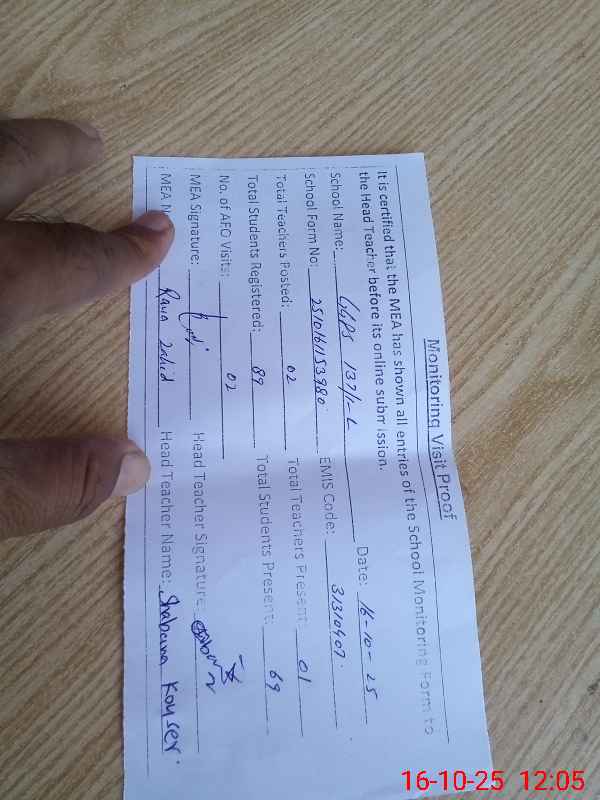 Monitoring Visit Proof
It is certified that the MEA has shown all entries of the School Monitoring Form to
the Head Teacher before its online submission.
School Name: GGPS 137/1-L Date: 16-10-25
School Form No: 2510161153980 EMIS Code: 31310407
Total Teachers Posted: 02 Total Teachers Present: 01
Total Students Registered: 89 Total Students Present: 69
No. of AFO Visits: 02
MEA Signature: Head Teacher Signature:
MEA N Rana Zahid Head Teacher Name: Shabana Kouser
16-10-25 12:05